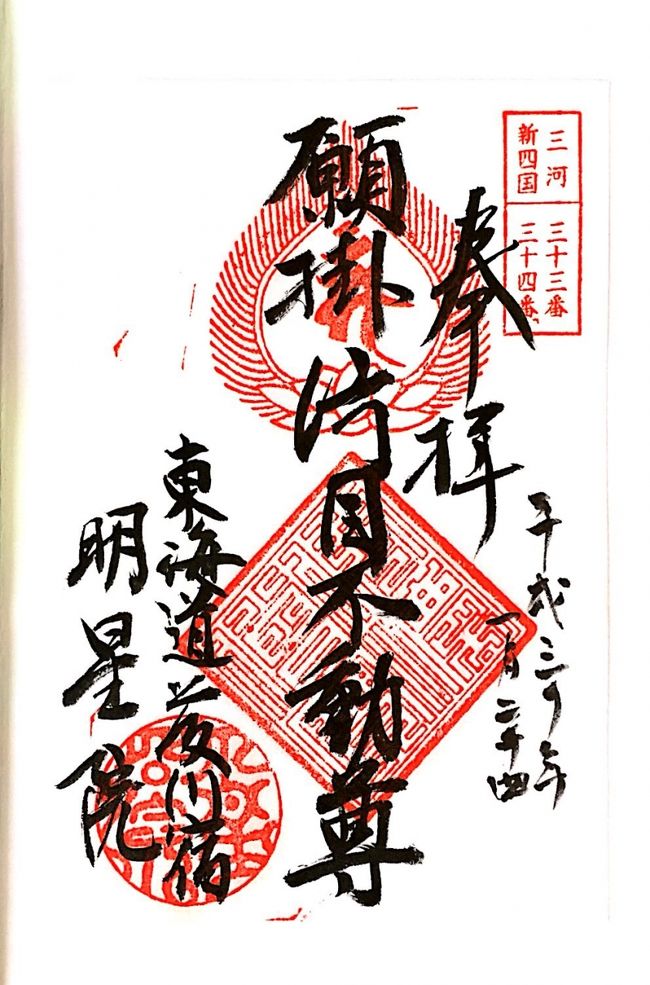 三河
新四国
三十三番
三十四番
奉拝
平成三十年
一月二十四
願掛片目不動尊
東海道藤川宿
明星院